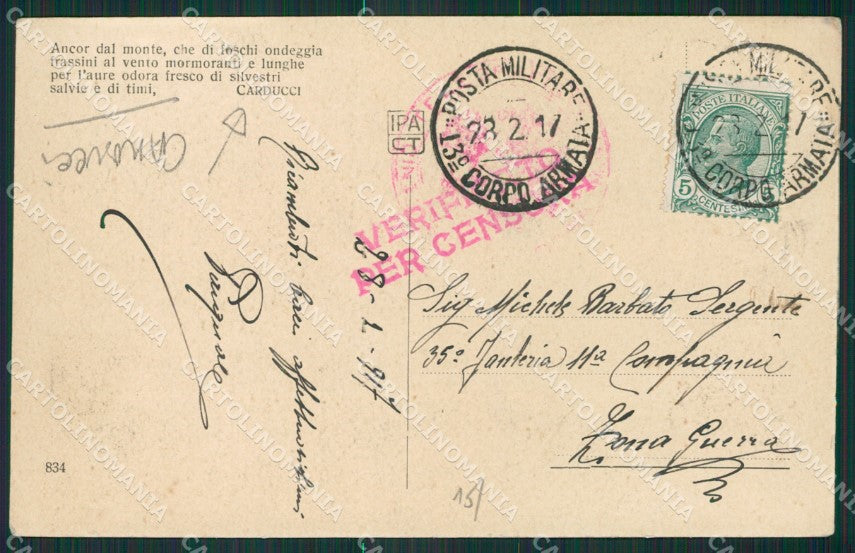 Ancor dal monte, che di foschi ondeggia
frassini al vento mormoranti e lunghe
per l'aure odora fresco di silvestri
salvie e di timi, CARDUCCI
IPA
CT
POSTA MILITARE
28 2 17
13º CORPO ARMATA
POSTA MILITARE
28 2 17
13º CORPO ARMATA
POSTE ITALIANE
5 CENTESIMI
VERIFICATO
PER CENSURA
Ricambioti baci affettuosissimi
Pasquale
28-2-917
Sig Michele Barbato Sergente
35º Fanteria 11ª Compagnia
Zona Guerra
834
157
CARTOLINOMANIA